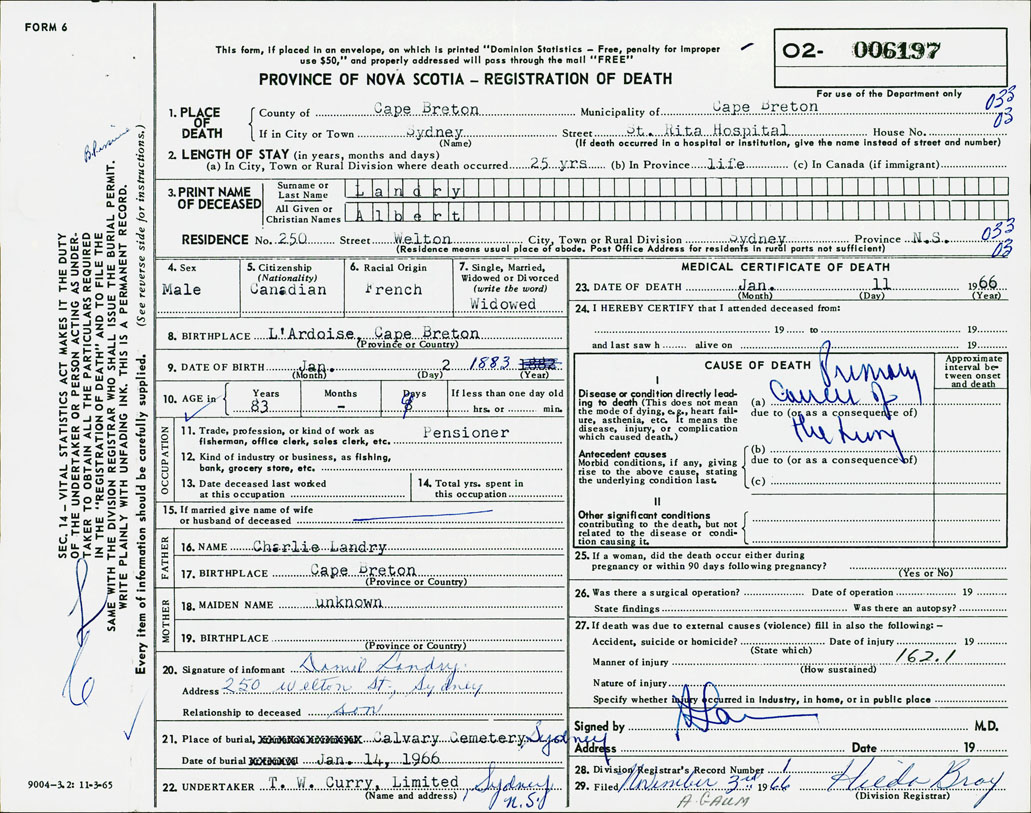 FORM 6
This form, if placed in an envelope, on which is printed "Dominion Statistics – Free, penalty for improper
use $50," and properly addressed will pass through the mail "FREE"
PROVINCE OF NOVA SCOTIA – REGISTRATION OF DEATH
02- 006197
For use of the Department only
033
03
1. PLACE OF DEATH
County of Cape Breton Municipality of Cape Breton
If in City or Town Sydney Street St. Rita Hospital House No.
(Name) (If death occurred in a hospital or institution, give the name instead of street and number)
2. LENGTH OF STAY (in years, months and days)
(a) In City, Town or Rural Division where death occurred 25 yrs (b) In Province life (c) In Canada (if immigrant)
3. PRINT NAME OF DECEASED
Surname or Last Name Landry
All Given or Christian Names Albert
RESIDENCE No. 250 Street Welton City, Town or Rural Division Sydney Province N.S.
(Residence means usual place of abode. Post Office Address for residents in rural parts not sufficient)
033
03
4. Sex
Male
5. Citizenship
(Nationality)
Canadian
6. Racial Origin
French
7. Single, Married,
Widowed or Divorced
(write the word)
Widowed
8. BIRTHPLACE L'Ardoise, Cape Breton
(Province or Country)
9. DATE OF BIRTH Jan. 2 1883 1882
(Month) (Day) (Year)
10. AGE in
Years
83
Months
–
Days
If less than one day old
hrs. or min.
OCCUPATION
11. Trade, profession, or kind of work as
fisherman, office clerk, sales clerk, etc. Pensioner
12. Kind of industry or business, as fishing,
bank, grocery store, etc.
13. Date deceased last worked
at this occupation
14. Total yrs. spent in
this occupation
15. If married give name of wife
or husband of deceased
FATHER
16. NAME Charlie Landry
17. BIRTHPLACE Cape Breton
(Province or Country)
MOTHER
18. MAIDEN NAME unknown
19. BIRTHPLACE
(Province or Country)
20. Signature of informant Daniel Landry
Address 250 Welton St., Sydney
Relationship to deceased son
21. Place of burial, Calvary Cemetery, Sydney
Date of burial Jan. 14, 1966
22. UNDERTAKER T. W. Curry, Limited, Sydney N.S.
(Name and address)
MEDICAL CERTIFICATE OF DEATH
23. DATE OF DEATH Jan. 11 1966
(Month) (Day) (Year)
24. I HEREBY CERTIFY that I attended deceased from:
19 to 19
and last saw h alive on 19
CAUSE OF DEATH
Approximate interval between onset and death
I
Disease or condition directly leading
to death (This does not mean
the mode of dying, e.g., heart failure,
asthenia, etc. It means the
disease, injury, or complication
which caused death.)
(a) Primary Cancer of
due to (or as a consequence of)
the Lung
Antecedent causes
Morbid conditions, if any, giving
rise to the above cause, stating
the underlying condition last.
(b)
due to (or as a consequence of)
(c)
II
Other significant conditions
contributing to the death, but not
related to the disease or condition
causing it.
25. If a woman, did the death occur either during
pregnancy or within 90 days following pregnancy?
(Yes or No)
26. Was there a surgical operation? Date of operation 19
State findings Was there an autopsy?
27. If death was due to external causes (violence) fill in also the following: –
Accident, suicide or homicide? Date of injury 19
(State which)
162.1
Manner of injury
(How sustained)
Nature of injury
Specify whether injury occurred in industry, in home, or in public place
Signed by M.D.
Address Date 19
28. Division Registrar's Record Number 1
29. Filed November 3rd 1966 Hilda Bray
(Division Registrar)
A GAUM
SEC. 14 – VITAL STATISTICS ACT MAKES IT THE DUTY
OF THE UNDERTAKER OR PERSON ACTING AS UNDER-
TAKER TO OBTAIN ALL THE PARTICULARS REQUIRED
IN THE "REGISTRATION OF DEATH" AND TO FILE THE
SAME WITH THE DIVISION REGISTRAR WHO SHALL ISSUE THE BURIAL PERMIT.
WRITE PLAINLY WITH UNFADING INK. THIS IS A PERMANENT RECORD.
Every item of information should be carefully supplied. (See reverse side for instructions.)
9004-3.2: 11-3-65